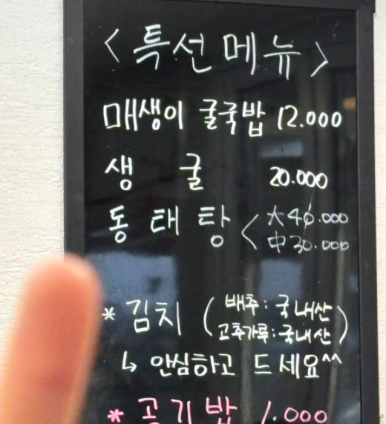 < 특선메뉴 >
매생이 굴국밥 12.000
생 굴 20.000
동태탕 < 大40.000
中30.000
* 김치 ( 배추: 국내산
고추가루: 국내산 )
↳ 안심하고 드세요^^
* 공기밥 1.000